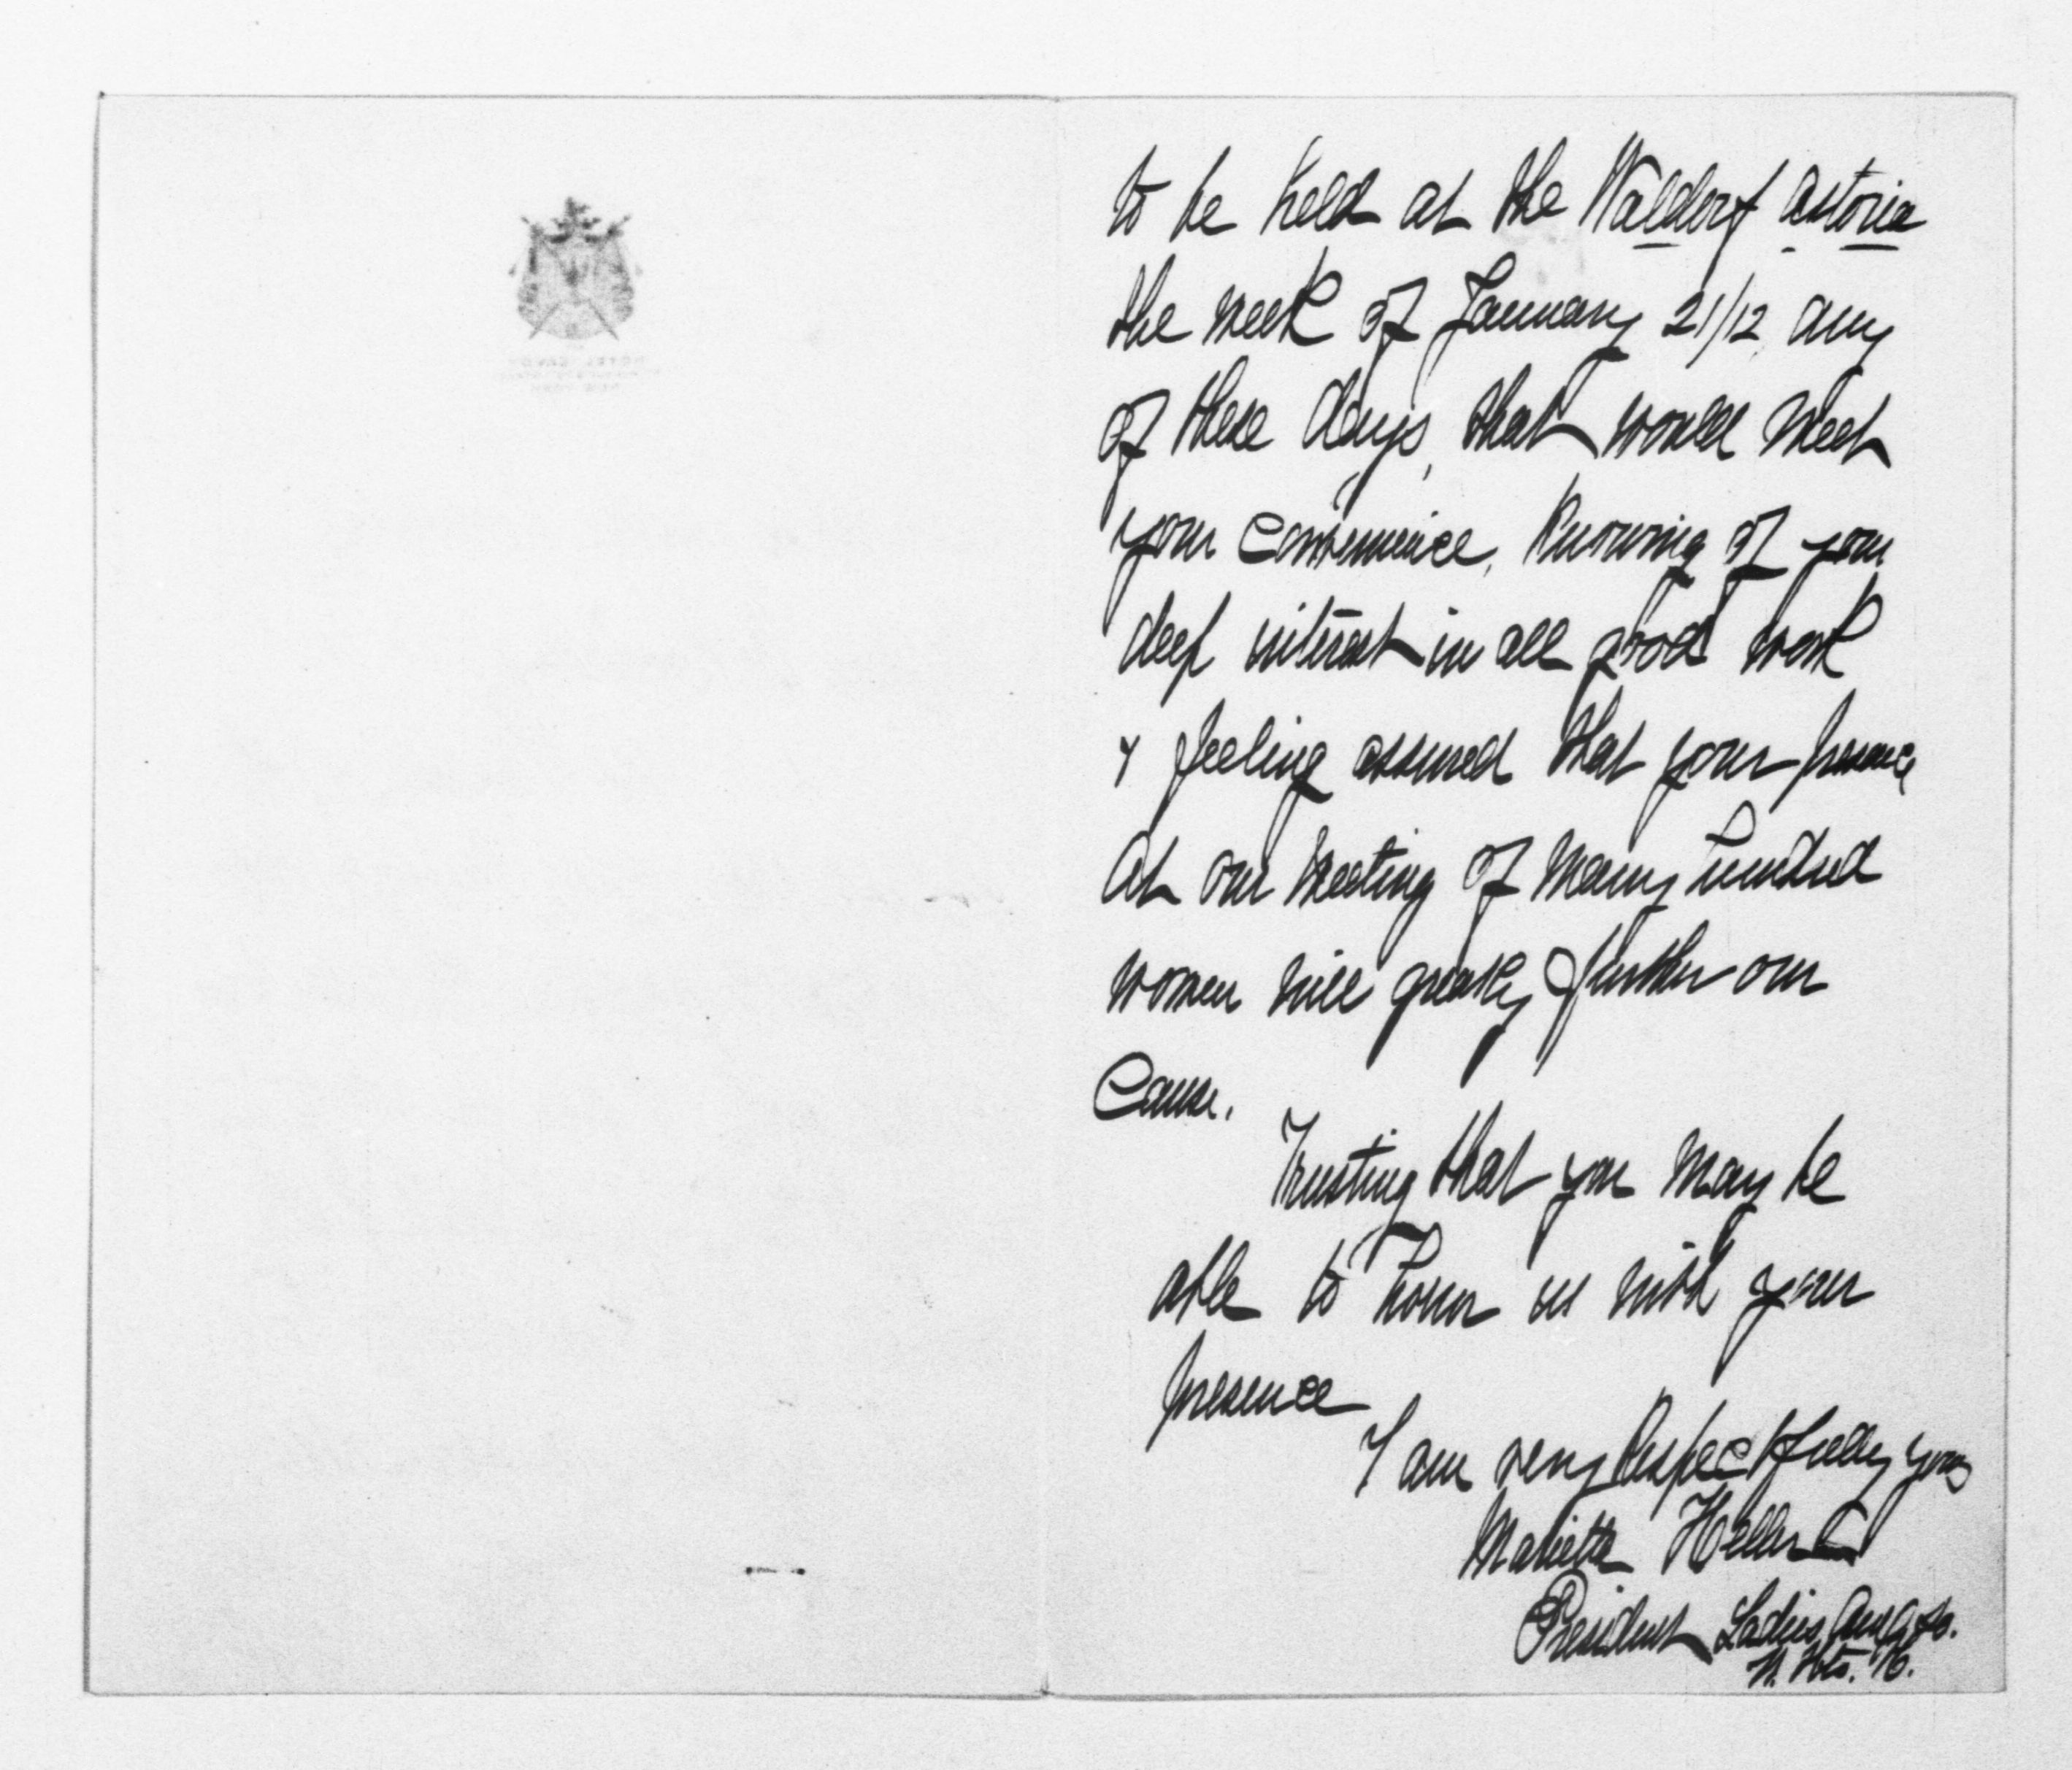 to be held at the Waldorf Astoria
the week of January 21/12, any
of these days, that would meet
your convenience. Knowing of your
deep interest in all good work
& feeling assured that your presence
at our meeting of many hundred
women will greatly further our
Cause.
Trusting that you may be
able to honor us with your
presence
I am very Respectfully yours
Marietta Heller
President Ladies Aux